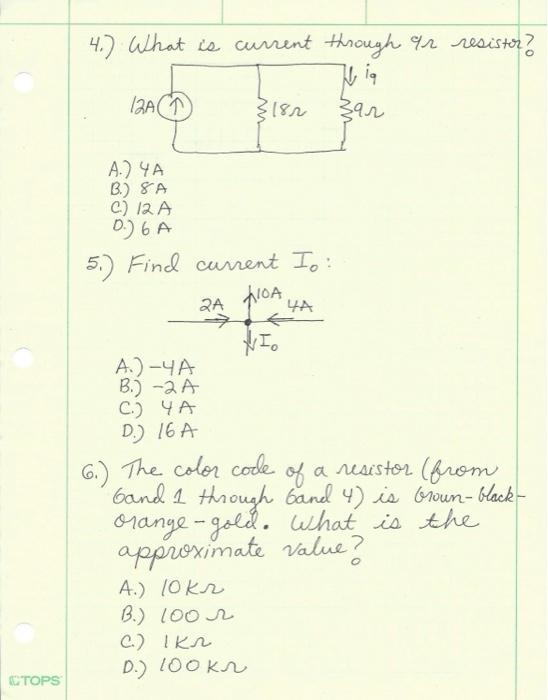 4.) What is current through 9Ω resistor?
↓ i9
12A ↑ 18Ω 9Ω
A.) 4A
B.) 8A
C.) 12A
D.) 6A
5.) Find current Io:
10A
2A 4A
Io
A.) -4A
B.) -2A
C.) 4A
D.) 16A
6.) The color code of a resistor (from
band 1 through band 4) is brown-black-
orange-gold. What is the
approximate value?
A.) 10KΩ
B.) 100Ω
C.) 1KΩ
D.) 100KΩ
TOPS